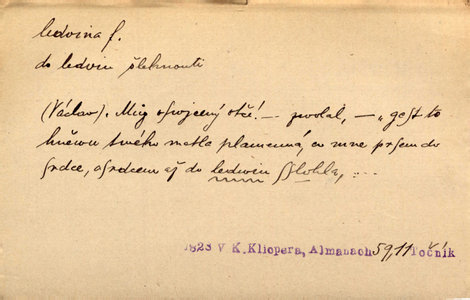 ledvina f.
do ledvin šlehnouti
(Václav). Můg osogený otče! — povolal, — „gest to
hněwu twého metla plamenná, co mne prsem do
srdce, a srdcem až do ledwin šlehla, ...
1823 V. K. Klicpera, Almanach 59, 11 Točník